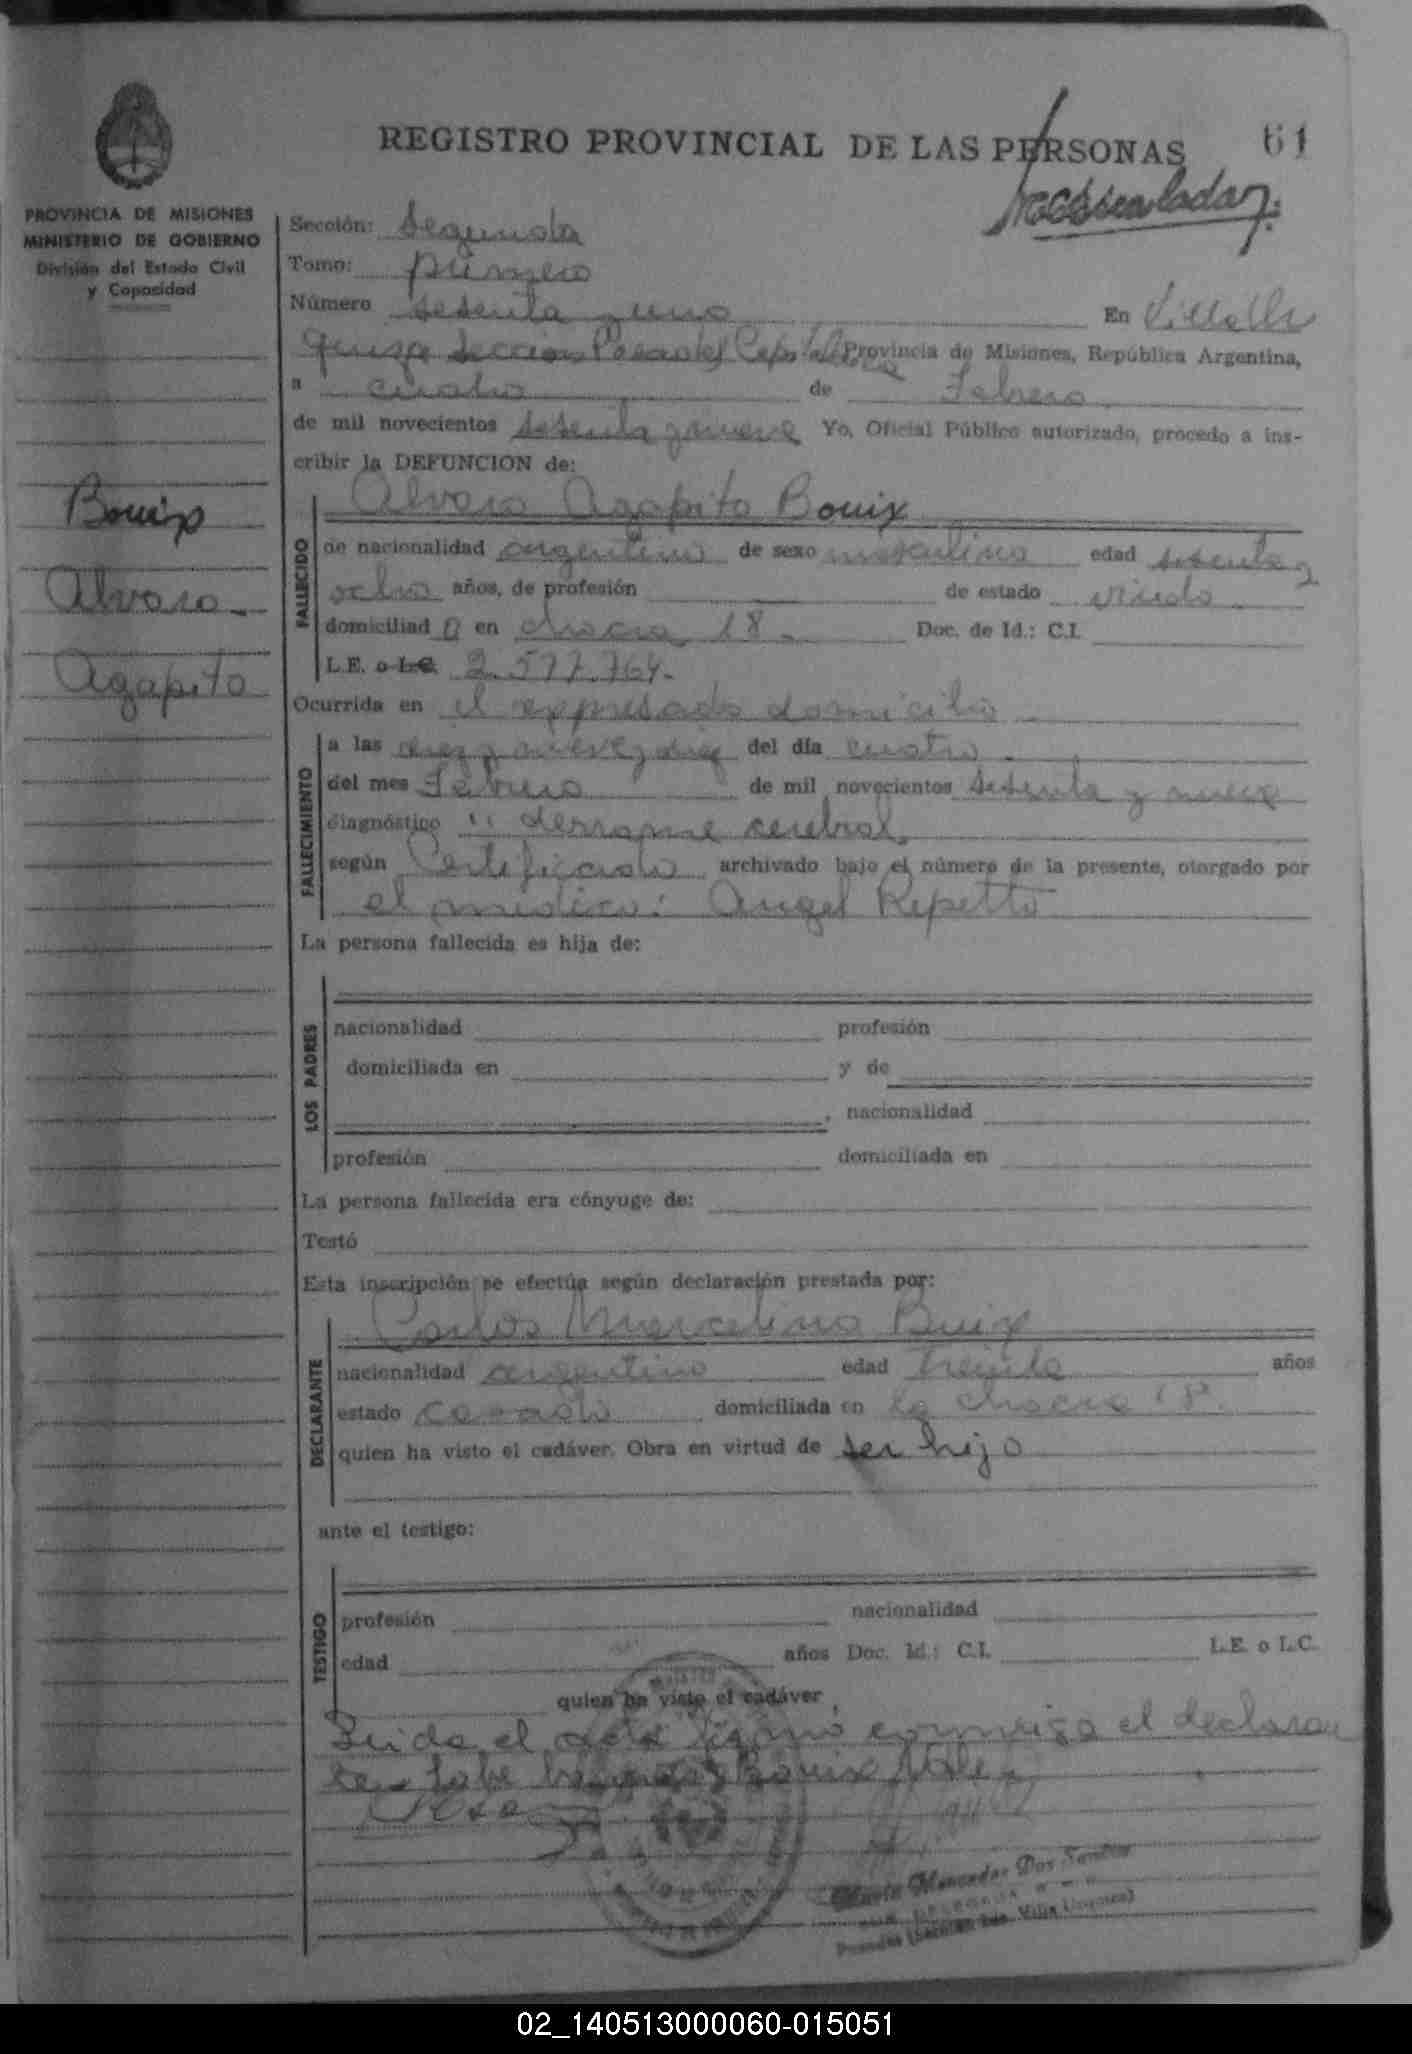 REGISTRO PROVINCIAL DE LAS PERSONAS
61
PROVINCIA DE MISIONES
MINISTERIO DE GOBIERNO
División del Estado Civil
y Capacidad
Sección: Segunda
Tomo: primero
Número sesenta y uno En Villa Ur
quiza Seccion Posadas Capital Provincia de Misiones, República Argentina,
a cuatro de Febrero
de mil novecientos sesenta y nueve Yo, Oficial Público autorizado, procedo a ins-
cribir la DEFUNCION de:
Bouix
Alvaro
Agapito
FALLECIDO
Alvaro Agapito Bouix
de nacionalidad argentino de sexo masculino edad sesenta y
ocho años, de profesión de estado viudo
domiciliad o en chacra 18. Doc. de Id.: C.I.
L.E. o L.C. 2.577.764.
Ocurrida en el expresado domicilio
FALLECIMIENTO
a las diez y nueve y diez del día cuatro
del mes Febrero de mil novecientos sesenta y nueve
diagnóstico " derrame cerebral
según Certificado archivado bajo el número de la presente, otorgado por
el médico: Angel Repetto
La persona fallecida es hija de:
LOS PADRES
nacionalidad profesión
domiciliada en y de
, nacionalidad
profesión domiciliada en
La persona fallecida era cónyuge de:
Testó
Esta inscripción se efectúa según declaración prestada por:
DECLARANTE
Carlos Marcelino Buix
nacionalidad argentino edad treinta años
estado casado domiciliada en la chacra 18.
quien ha visto el cadáver. Obra en virtud de ser hijo
ante el testigo:
TESTIGO
profesión nacionalidad
edad años Doc. Id.: C.I. L.E. o L.C.
quien ha visto el cadáver
Leida el acta firmó conmigo el declaran
te Bouix Vale
Dos Santos
Posadas Villa Urquiza)
02_140513000060-015051